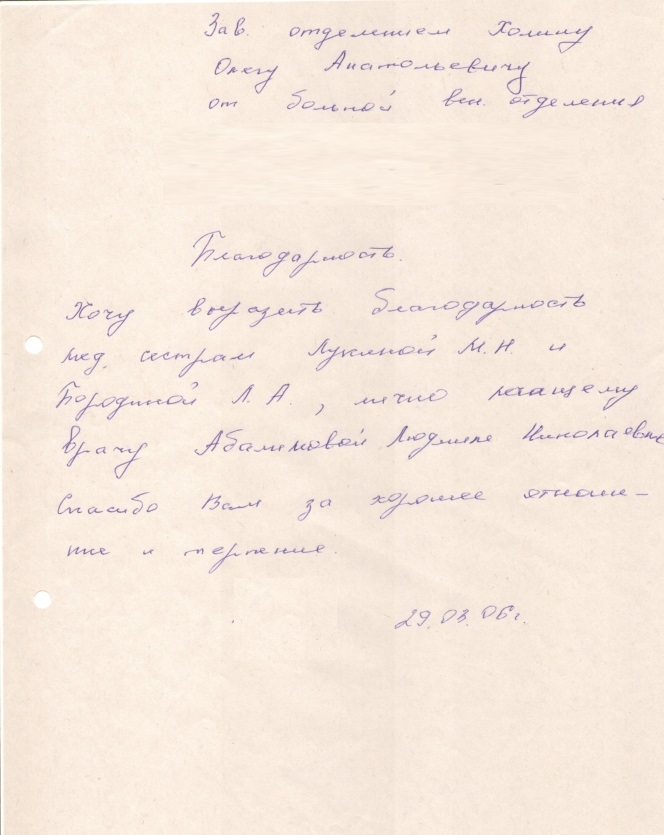 Зав. отделением Холину
Олегу Анатольевичу
от больной вен. отделения
Благодарность.
Хочу выразить благодарность
мед. сестрам Лукиной М.Н. и
Бородиной Л.А., лично лечащему
врачу Абалиховой Людмиле Николаевне
Спасибо Вам за хорошее отноше-
ние и терпение.
29.03.06г.